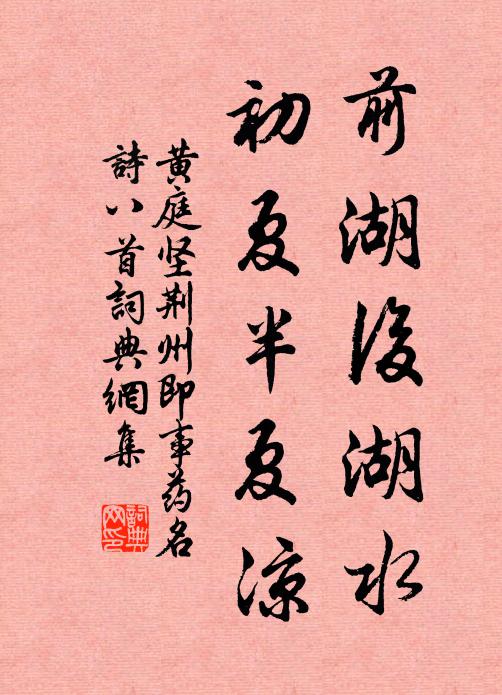 前湖後湖水
初夏半夏涼
黄庭坚荆州即事药名
詩八首詞典網集
詞典网印